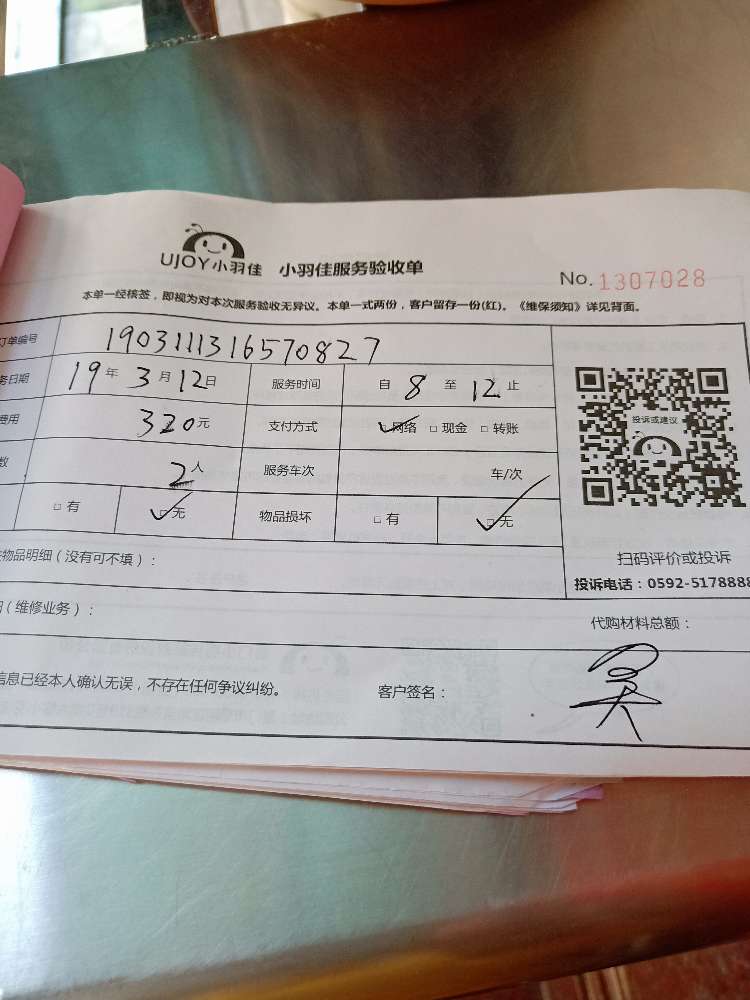 UJOY小羽佳 小羽佳服务验收单
No. 1307028
本单一经核签，即视为对本次服务验收无异议。本单一式两份，客户留存一份(红)。《维保须知》详见背面。
订单编号 1903111316570827
务日期 19年 3月 12日 服务时间 自 8 至 12 止
费用 320元 支付方式 □网络 □现金 □转账
数 2人 服务车次 车/次
□有 □无 物品损坏 □有 □无
投诉或建议
扫码评价或投诉
投诉电话：0592-5178888
物品明细（没有可不填）：
（维修业务）：
代购材料总额：
信息已经本人确认无误，不存在任何争议纠纷。 客户签名：